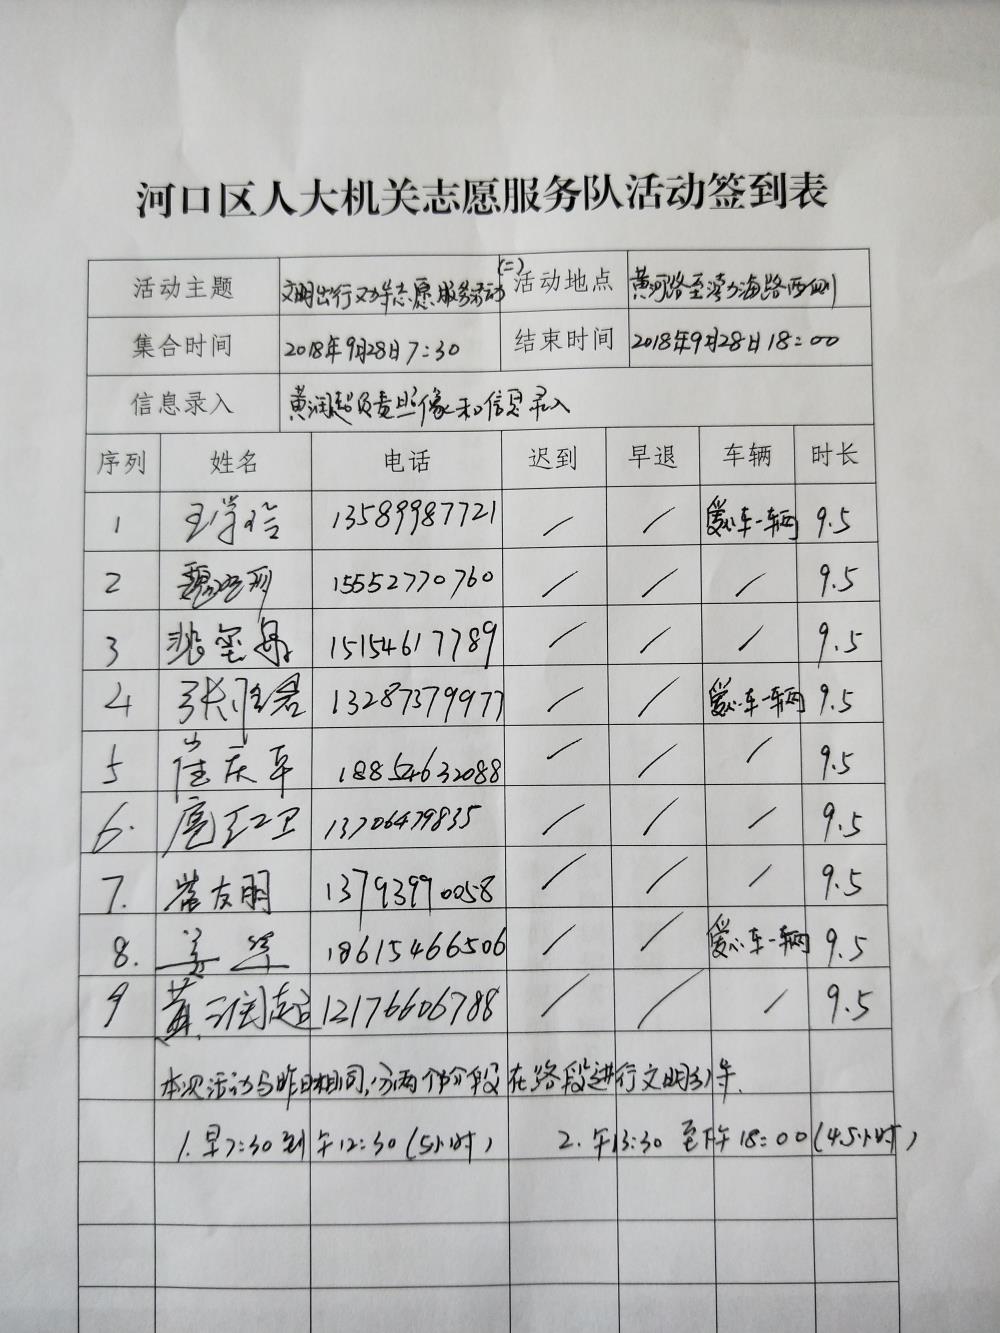 河口区人大机关志愿服务队活动签到表
活动主题 文明出行劝导志愿服务活动(二) 活动地点 黄河路至渤海路西侧
集合时间 2018年9月28日7:30 结束时间 2018年9月28日18:00
信息录入 黄润超负责照像和信息录入
序列 姓名 电话 迟到 早退 车辆 时长
1 13589987721 / / 爱心车一辆 9.5
2 15552770760 / / / 9.5
3 15154617789 / / / 9.5
4 13287379977 / / 爱心车一辆 9.5
5 崔庆平 18854632088 / / / 9.5
6. 13706479835 / / / 9.5
7. 常友朋 13793990058 / / / 9.5
8. 18615466506 / / 爱心车一辆 9.5
9 黄润超 12176606788 / / / 9.5
本次活动与昨日相同,分两个时段在路段进行文明引导.
1.早7:30到午12:30(5小时) 2.午13:30至下午18:00(4.5小时)